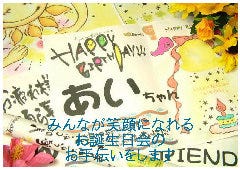 HAPPY
BIRTHDAY!!
あい
ちゃん
みんなが笑顔になれる
お誕生日会の
お手伝いをします
FRIEND